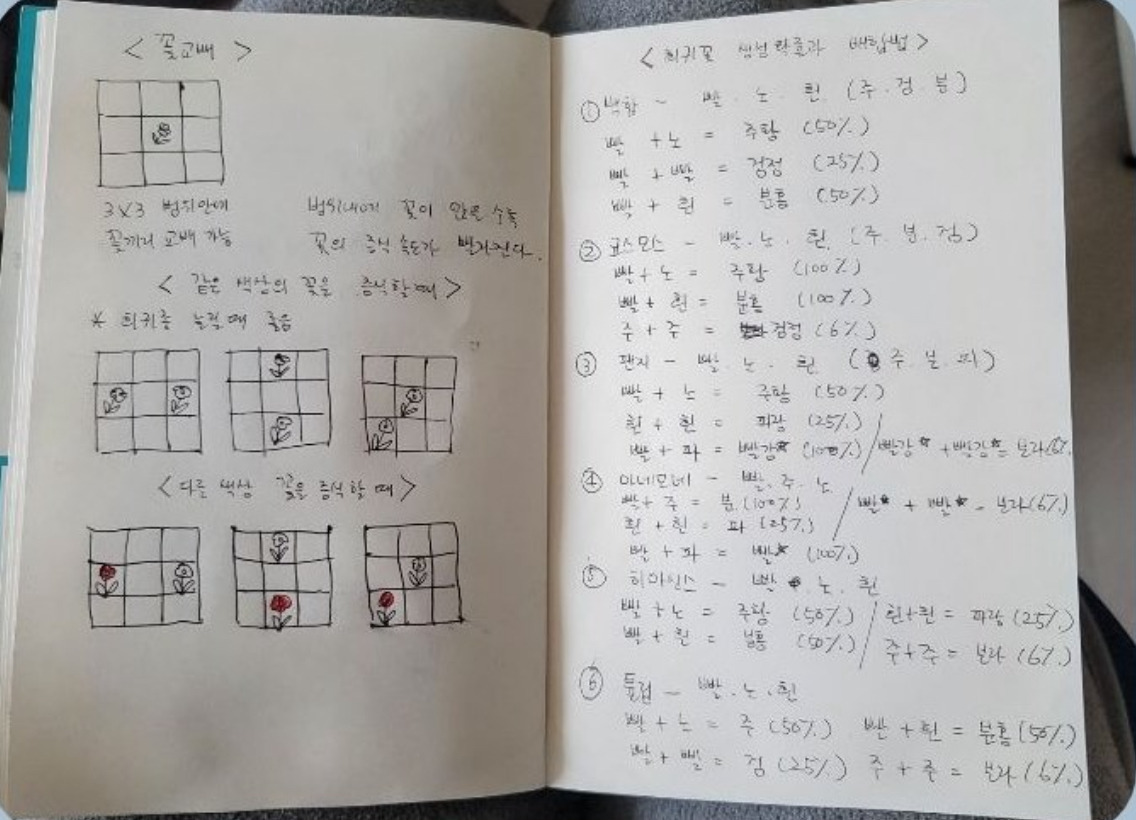 < 꽃교배 >
3X3 범위안에
꽃끼리 교배 가능
범위내에 꽃이 많을 수록
꽃의 증식 속도가 빨라진다.
< 같은 색상의 꽃을 증식할때 >
* 희귀종 늘릴때 좋음
< 다른 색상 꽃을 증식할때 >
< 희귀꽃 생성확률과 배합법 >
① 백합 - 빨. 노. 흰. (주. 검. 분)
빨 + 노 = 주황 (50%)
빨 + 빨 = 검정 (25%)
빨 + 흰 = 분홍 (50%)
② 코스모스 - 빨. 노. 흰. (주. 분. 검)
빨 + 노 = 주황 (100%)
빨 + 흰 = 분홍 (100%)
주 + 주 = 검정 (6%)
③ 팬지 - 빨. 노. 흰. (주. 분. 파)
빨 + 노 = 주황 (50%)
흰 + 흰 = 파랑 (25%)
빨 + 파 = 빨강★ (100%) / 빨강★ + 빨강★ = 보라(6%)
④ 아네모네 - 빨. 주. 노
빨 + 주 = 분 (100%) / 빨★ + 빨★ = 보라(6%)
흰 + 흰 = 파 (25%)
빨 + 파 = 빨★ (100%)
⑤ 히아신스 - 빨. 노. 흰
빨 + 노 = 주황 (50%) / 흰+흰 = 파랑 (25%)
빨 + 흰 = 분홍 (50%) / 주+주 = 보라 (6%)
⑥ 튤립 - 빨. 노. 흰
빨 + 노 = 주 (50%) 빨 + 흰 = 분홍 (50%)
빨 + 빨 = 검 (25%) 주 + 주 = 보라 (6%)